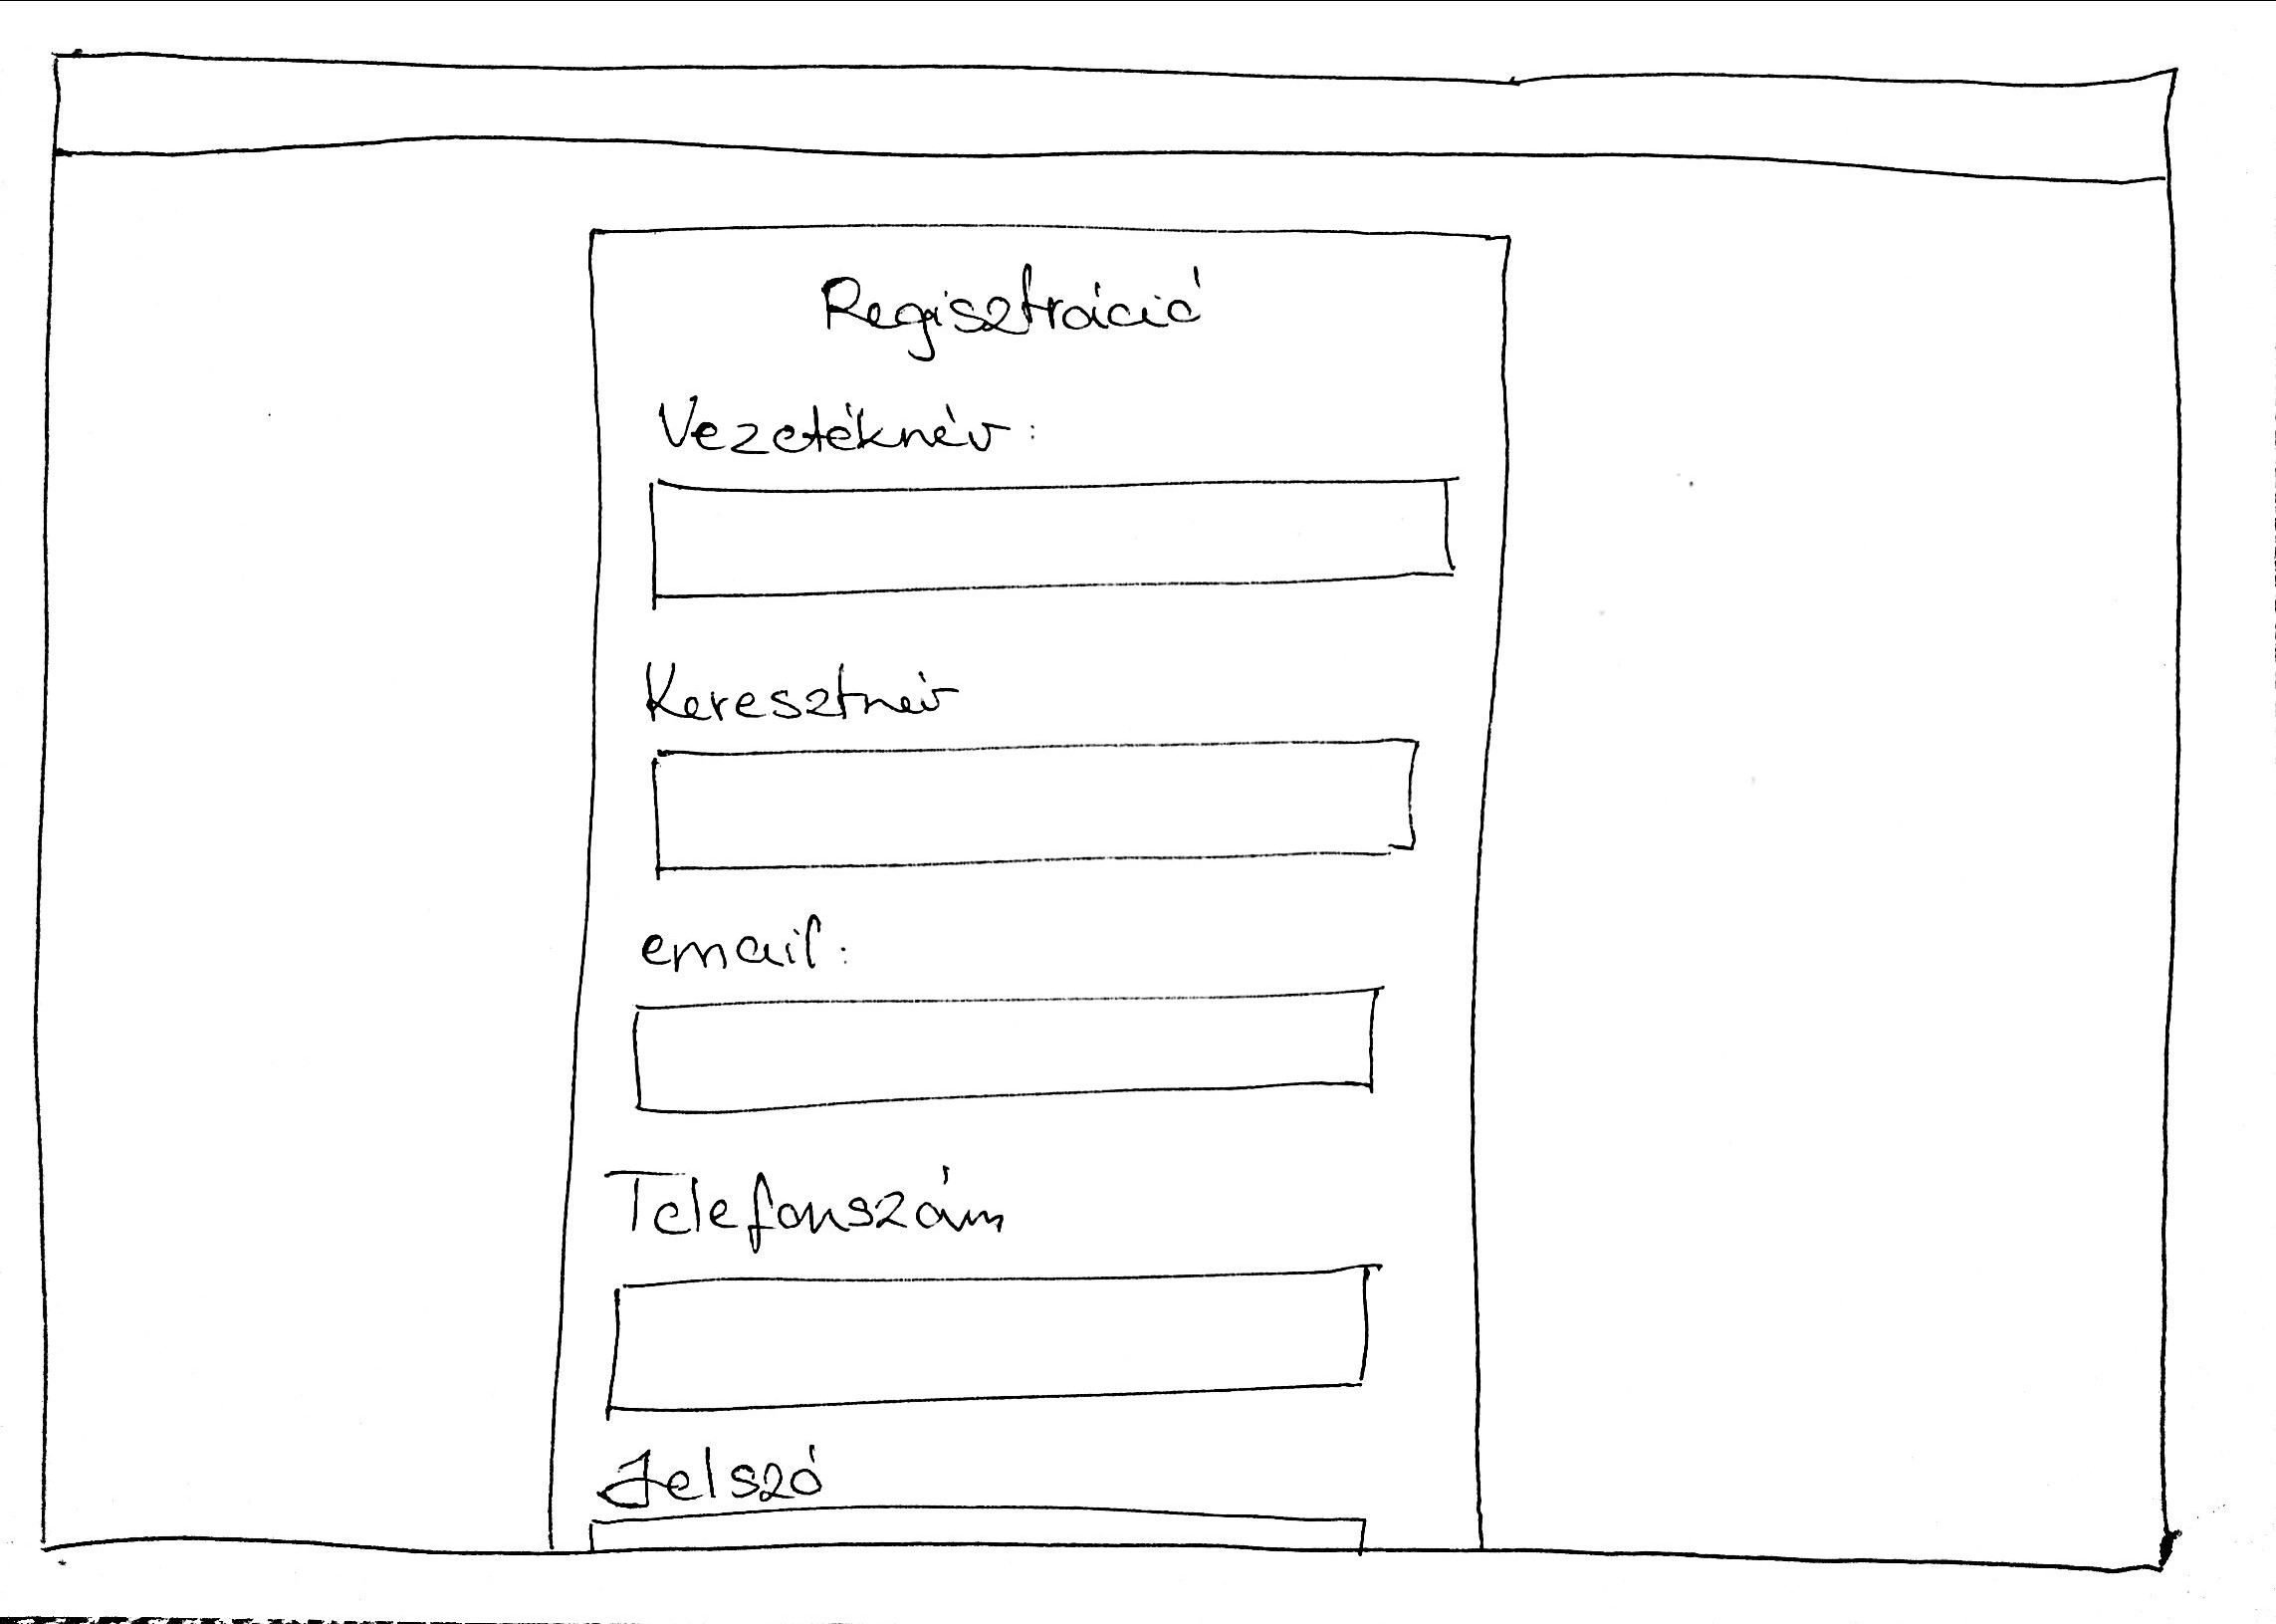 Regisztráció
Vezetéknév:
Keresztnév
email:
Telefonszám
Jelszó